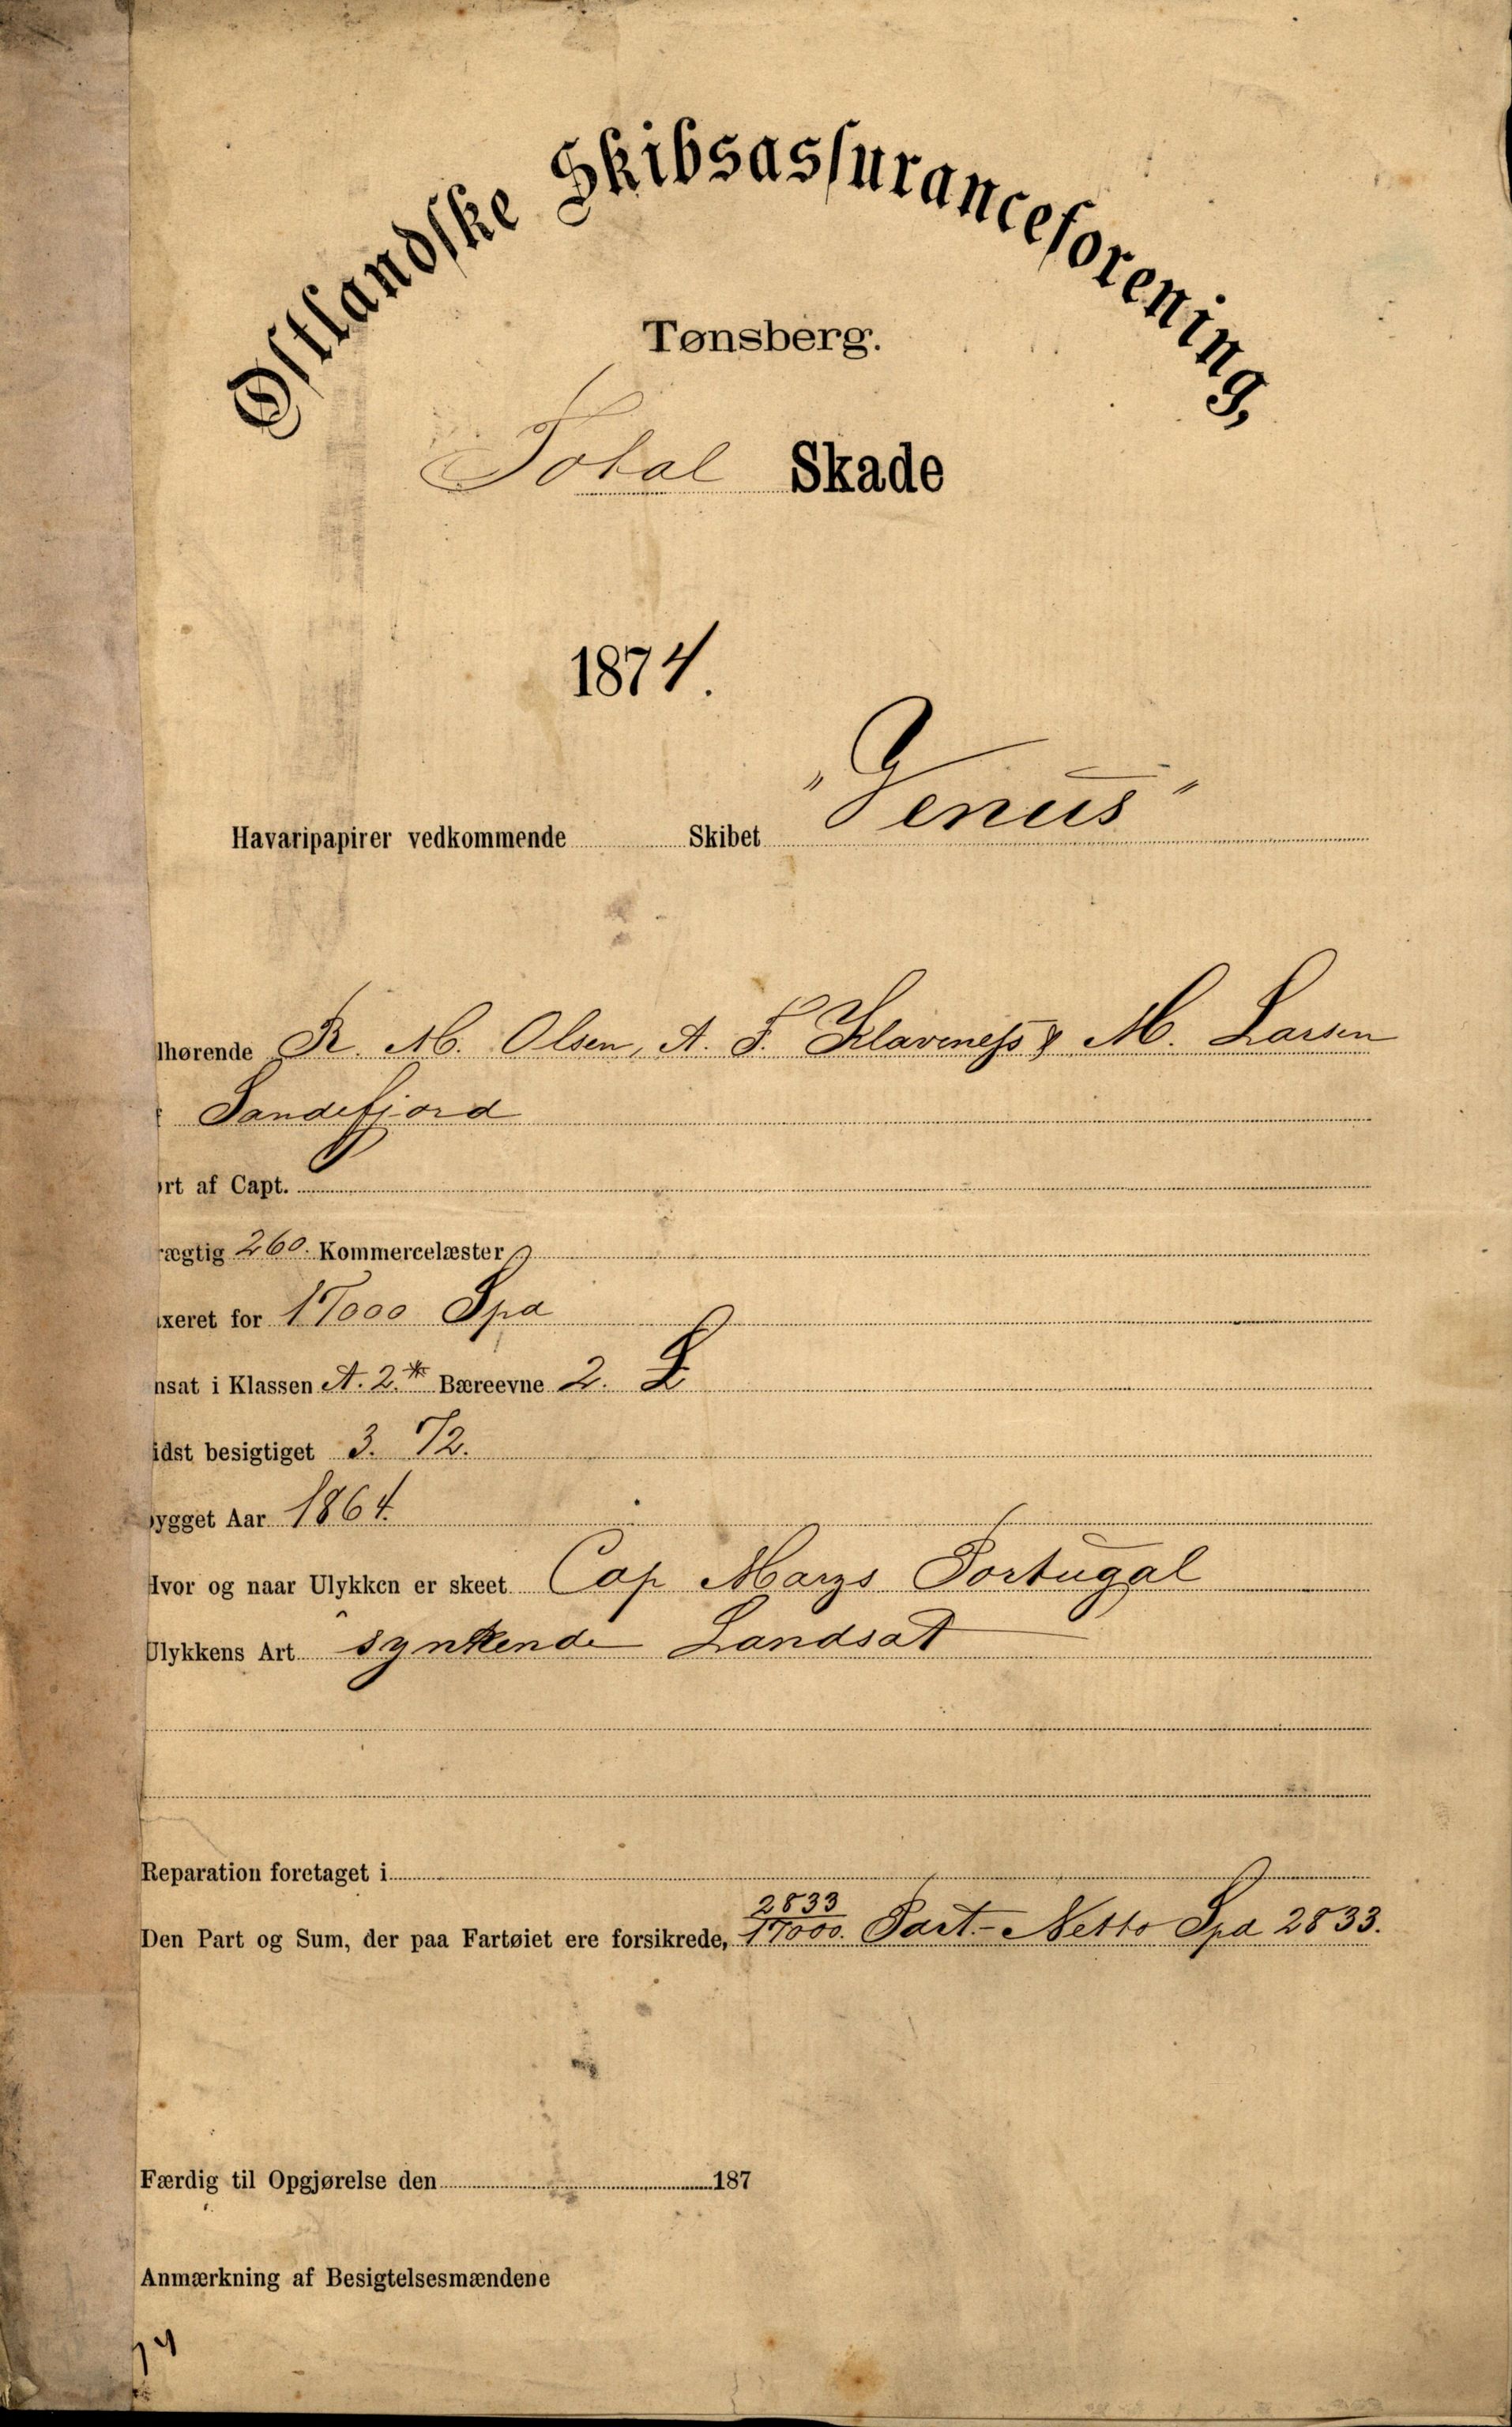 Østlandske Skibsassuranceforening,
Tønsberg.
Total Skade
1874.
Havaripapirer vedkommende Skibet "Venus"
lhørende R. M. Olsen, A. F. Klaveness & M. Larsen
Sandefjord
rt af Capt.
ægtig 260. Kommercelæster
xeret for 17000 Spd
nsat i Klassen A. 2.* Bæreevne 2. L
idst besigtiget 3. 72.
ygget Aar 1864.
Hvor og naar Ulykken er skeet Cap Margs Portugal
Ulykkens Art synkende Landsat
Reparation foretaget i
Den Part og Sum, der paa Fartøiet ere forsikrede, 2833/17000. Part.- Netto Spd 2833.
Færdig til Opgjørelse den 187
Anmærkning af Besigtelsesmændene